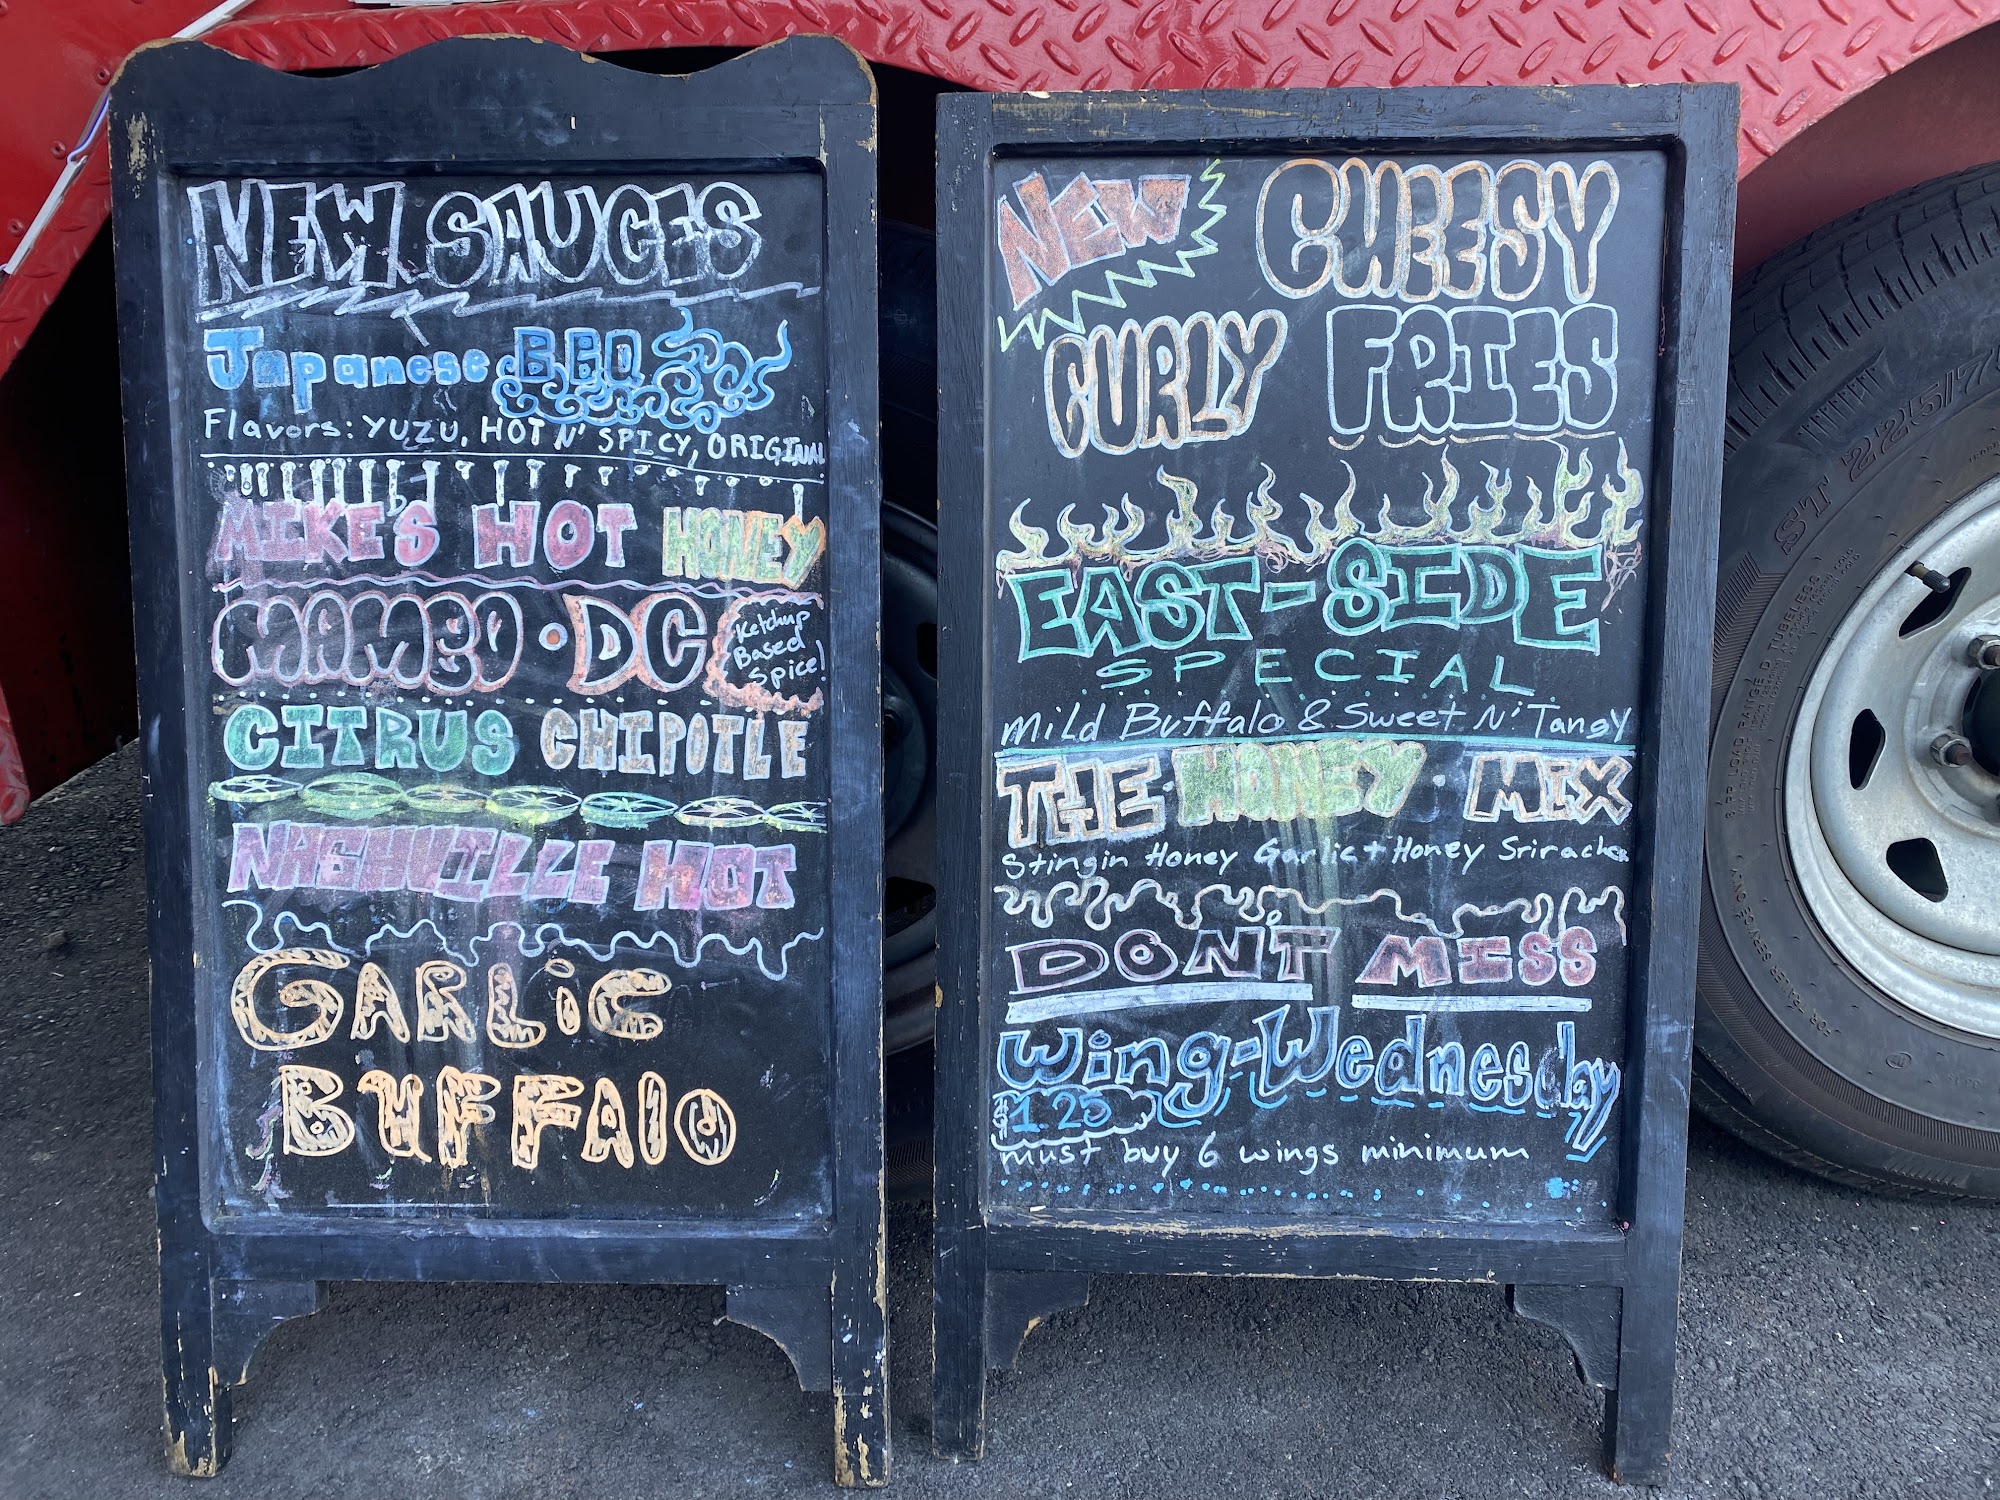 NEW SAUCES
Japanese BBQ
Flavors: YUZU, HOT N' SPICY, ORIGINAL
MIKE'S HOT HONEY
MAMBO • DC
Ketchup
Based
Spice!
CITRUS CHIPOTLE
NASHVILLE HOT
GARLiC
BUFFAlO
NEW CHEESY
CURLY FRIES
EAST-SIDE
SPECIAL
Mild Buffalo & Sweet N' Tangy
THE • HONEY • MIX
Stingin Honey Garlic + Honey Sriracha
DON'T MISS
Wing-Wednesday
$1.25
must buy 6 wings minimum
ST 225/75
TUBELESS